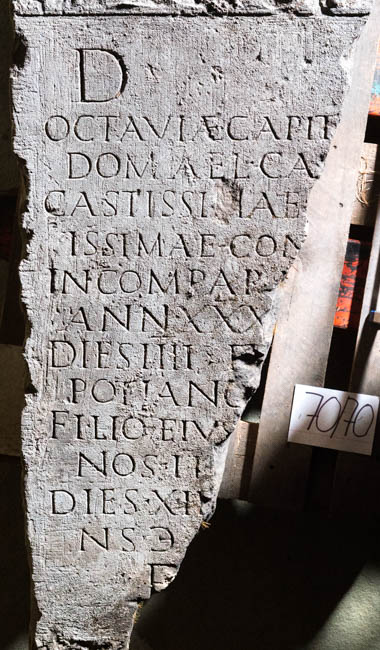 D
OCTAVIAE CAPIT
DOM A EL·CA
CASTISSIMAE
ISSIMAE·CON
INCOMPAR
ANN XXX
DIES IIII · E
POTIANO
FILIO·EIVS
NOS·II
DIES·XI
NS·Ɔ
F
70/70